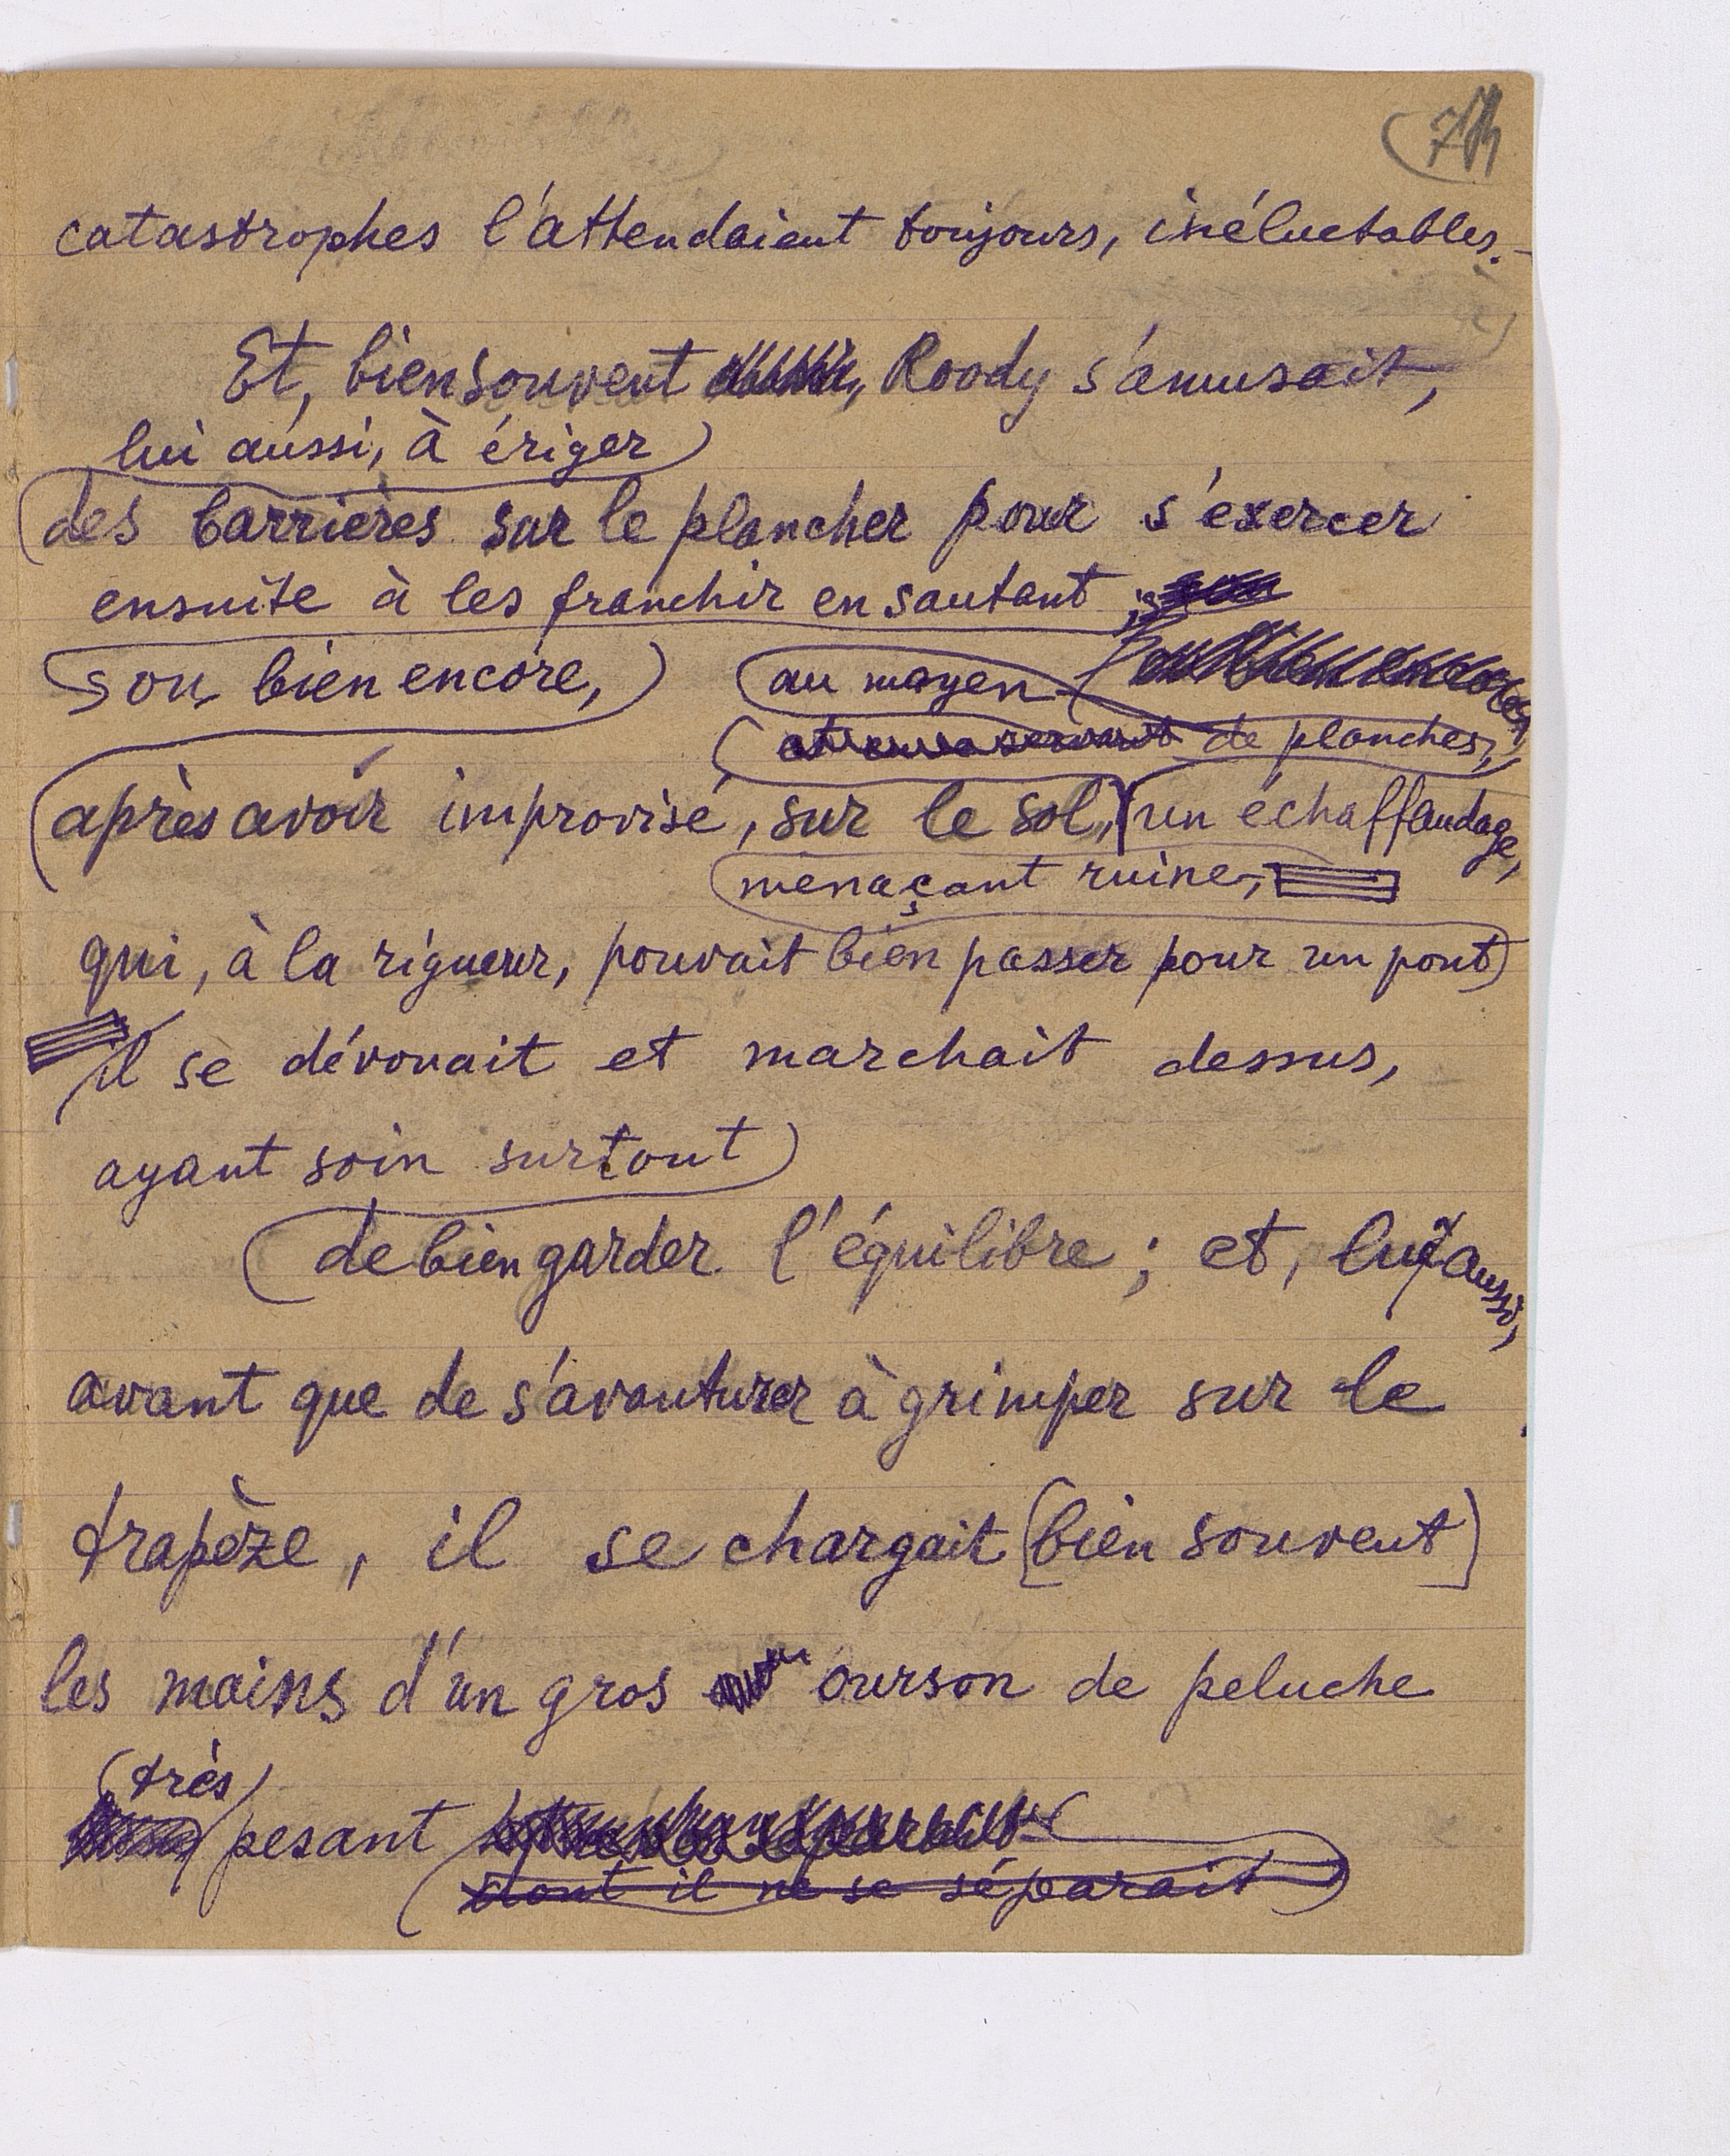 catastrophes l'attendaient toujours, inéluctables.-
Et, bien souvent, Roody s'amusait,
lui aussi, à ériger
des barrières sur le plancher pour s'exercer
ensuite à les franchir en sautant ;
ou bien encore,
au moyen
de planches,
après avoir improvisé, sur le sol, un échaffaudage,
menaçant ruine,
qui, à la rigueur, pouvait bien passer pour un pont
il se dévouait et marchait dessus,
ayant soin surtout
de bien garder l'équilibre ; et, lui aussi,
avant que de s'avanturer à grimper sur le
trapèze, il se chargait [bien souvent]
les mains d'un gros ourson de peluche
(très)
pesant
dont il ne se séparait